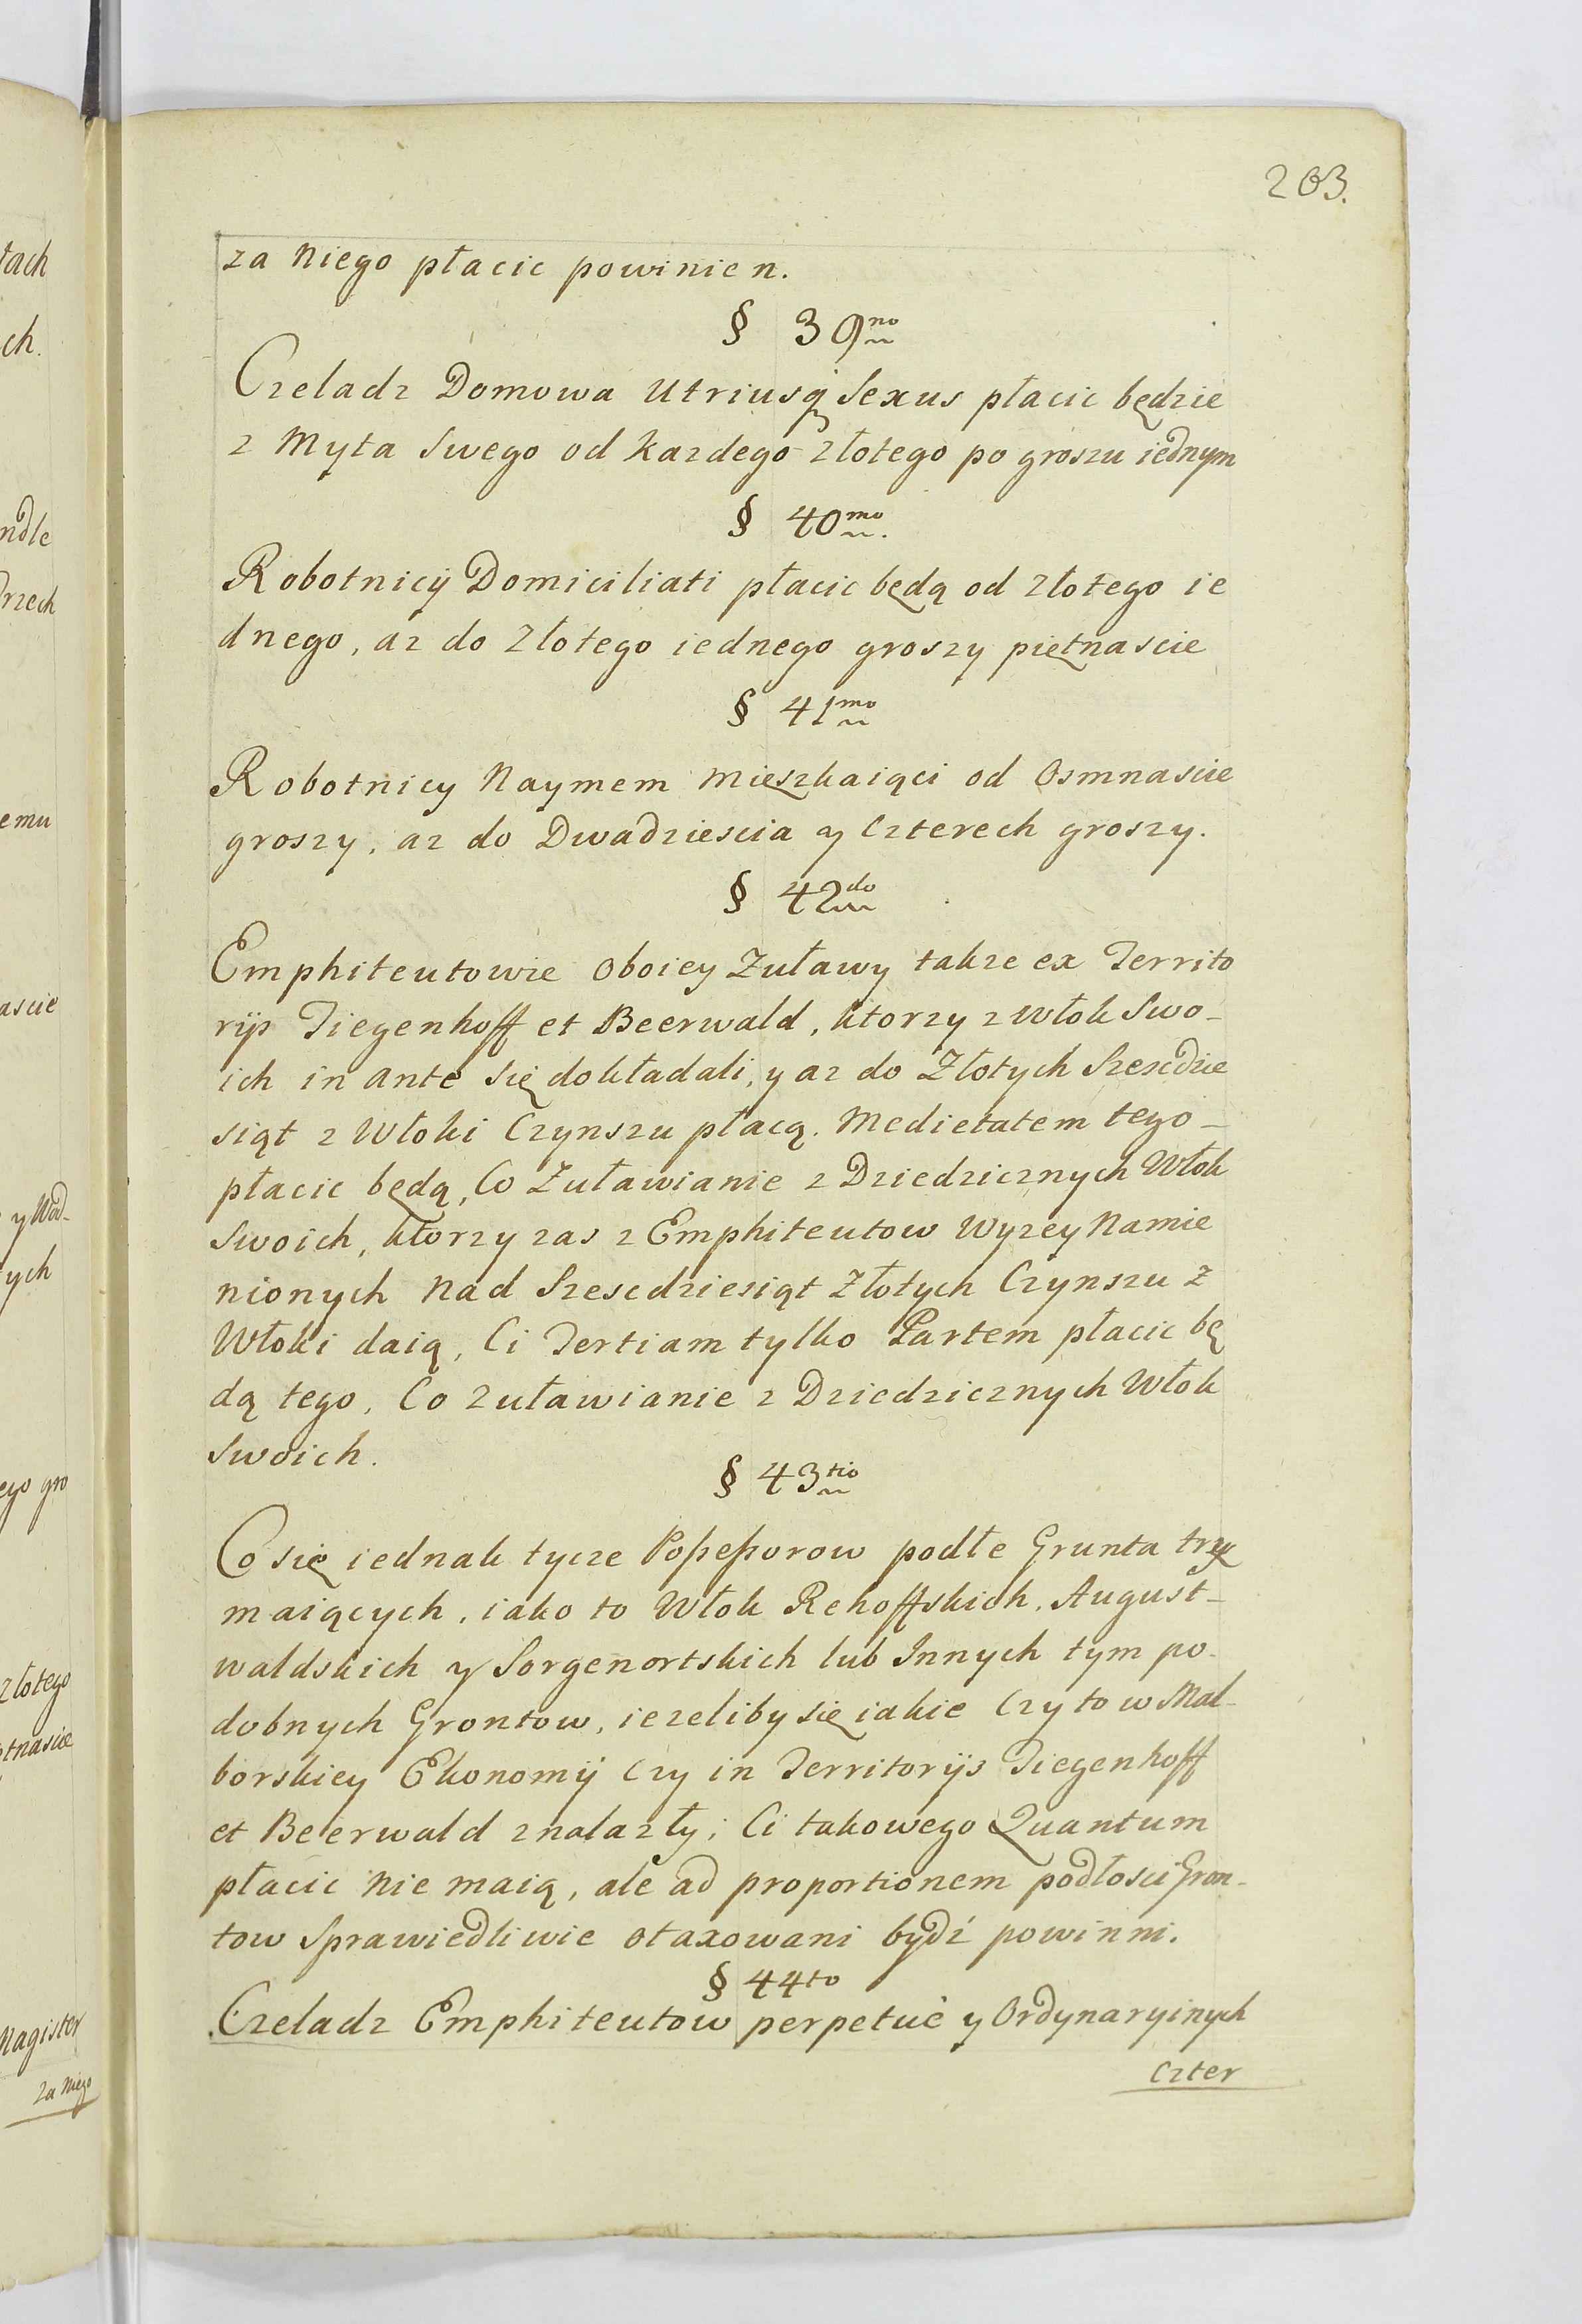 203.
za Niego płacic powinien.
§ 39no
Czeladz Domowa Utriusq Sexus płacic będzie
z Myta Swego od kazdego złotego po groszu iednym
§ 40mo.
Robotnicÿ Domiciliati płacic będą od złotego ie
dnego, az do Złotego iednego groszy piętnascie
§ 41mo
Robotnicy Naymem mieszkaiąci od Osmnascie
groszy, az do Dwadziescia y Czterech groszy.
§ 42do
Emphiteutowie oboiey Zuławy takze ex Territo
rÿs Tiegenhoff et Beerwald, ktorzy z Włok Swo-
ich in Ante się dokładali, y az do Złotych Szescdzie
siąt z Włoki Czynszu płacą. Medietatem tego-
płacic będą, Co Zuławianie z Dziedzicznych Włok
Swoich, ktorzy zas z Emphiteutow Wyzey Namie
nionych Nad Szescdziesiąt Złotych Czynszu z
Włoki daią, Ci Tertiam tylko Partem płacic bę
dą tego, Co Zuławianie z Dziedzicznych Włok
Swoich.
§ 43tio
Co się iednak tycze Poßeßorow podłe Grunta trzy
maiących, iako to Włok Rehoffskich, August-
waldskich y Sorgenortskich lub Innych tym po-
dobnych Grontow, iezeliby się iakie Czy to w Mal-
borskiey Ekonomÿ czy in Territorÿs Tiegenhoff
et Beerwald znalazły; Ci takowego Quantum
płacic Nie maią, ale ad proportionem podłosci Gron-
tow Sprawiedliwie otaxowani bydź powinni.
§ 44to
Czeladz Emphiteutow perpetuè y Ordynaryinych
Czter
tach
ch.
ndle
drzech
emu
ascie
y Wod-
tych
ego gro
złotego
ętnascie
Magister
Za Niego